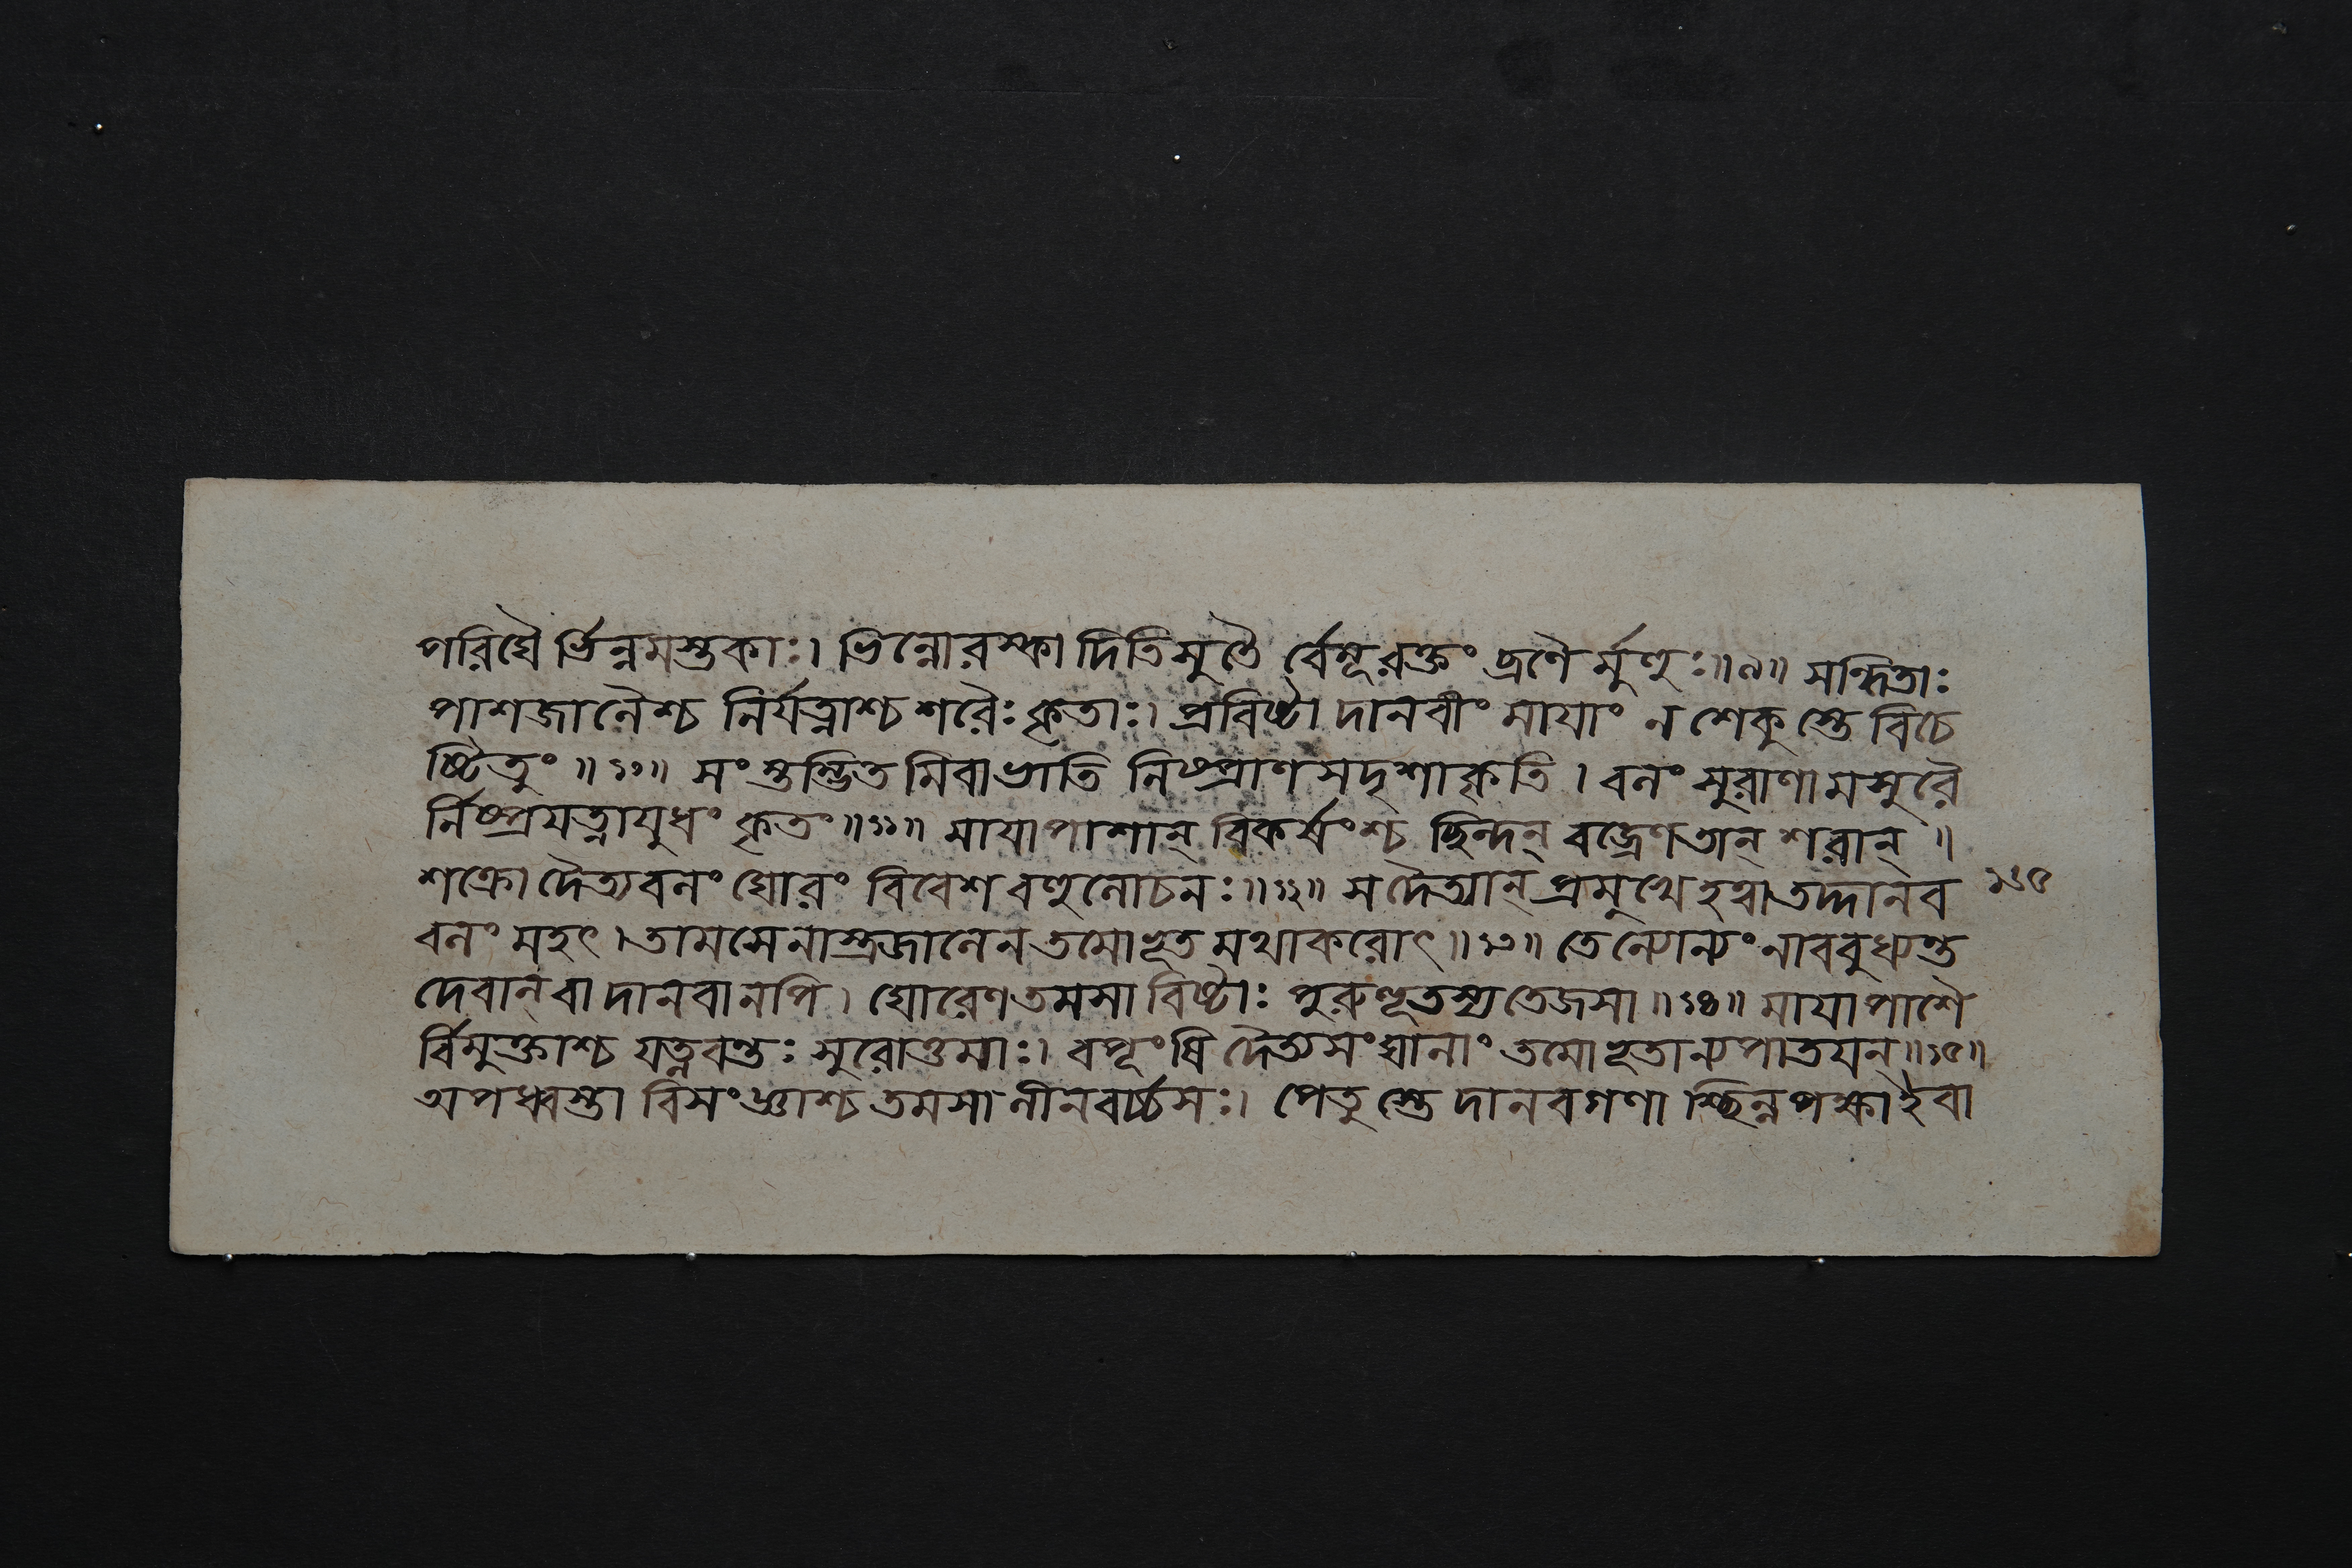 পরিঘৈর্ভিন্নমস্তকাঃ। ভিন্নোরস্কা দিতিসুতৈর্বেমূরক্তং ব্রণৈর্মুহুঃ॥৯॥ সন্দিতাঃ
পাশজালৈশ্চ নির্যত্নাশ্চ শরৈঃ কৃতাঃ। প্রবিষ্টা দানবীং মাযাং ন শেকুস্তে বিচে
ষ্টিতুং॥১০॥ সংস্তম্ভিতমিবাভাতি নিষ্প্রাণসদৃশাকৃতি। বলং সুরাণামসুরৈ
র্নিষ্প্রযত্নাযুধং কৃতং॥১১॥ মাযাপাশান্ বিকর্ষংশ্চ ছিন্দন্ বজ্রেণ তান্ শরান্॥
শক্রো দৈত্যবলং ঘোরং বিবেশ বহুলোচনঃ॥১২॥ স দৈত্যান্ প্রমুখে হত্বা তদ্দানব
বলং মহৎ। তামসেনাস্ত্রজালেন তমোভূতমথাকরোৎ॥১৩॥ তেন্যোন্যং নাববুধ্যন্ত
দেবান্ বা দানবানপি। ঘোরেণ তমসাবিষ্টাঃ পুরুহূতস্য তেজসা॥১৪॥ মাযাপাশৈ
র্বিমুক্তাশ্চ যত্নবন্তঃ সুরোত্তমাঃ। বপূংষি দৈত্যসংঘানাং তমোভূতান্যপাতযন্॥১৫॥
অপধ্বস্তা বিসংজ্ঞাশ্চ তমসা নীলবর্চ্চসঃ। পেতুস্তে দানবগণাশ্ছিন্নপক্ষা ইবা
১৬৫